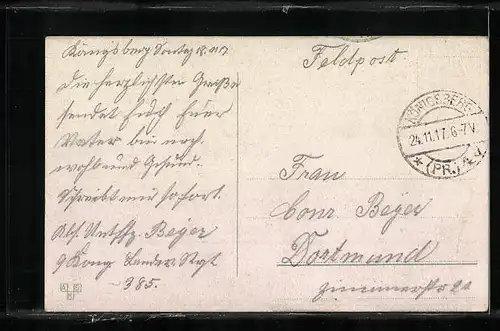 Königsberg Sontag 18.11.17
Die herzlichsten Grüße
sendet Euch Euer
Vater bin noch
wohl und Gesund.
Schreibt mir sofort.
Abs. Beyer
9 Komp
385.
Feldpost
KÖNIGSBERG
24.11.17. 6-7V.
* (PR.) 4
Frau
Conr Beyer
Dortmund